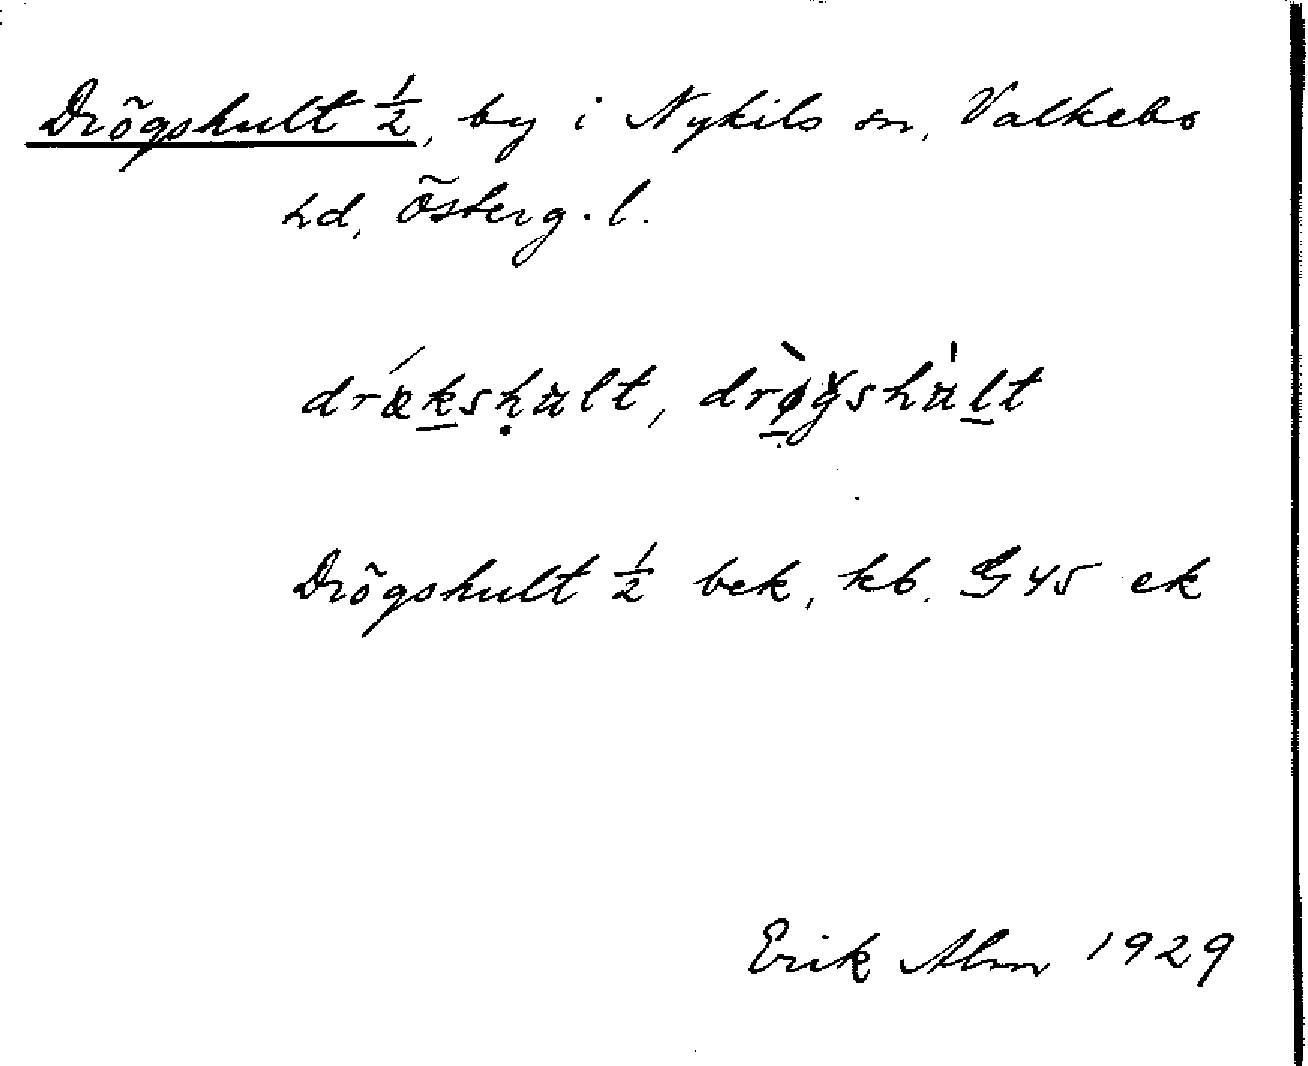 Drögshult ½, by i Nykils sn, Valkebo
hd, Österg. l.
drǽkshult, drø̀gshu̍lt
Drögshult ½ bek, kb. G 45 ek
Erik Alm 1929